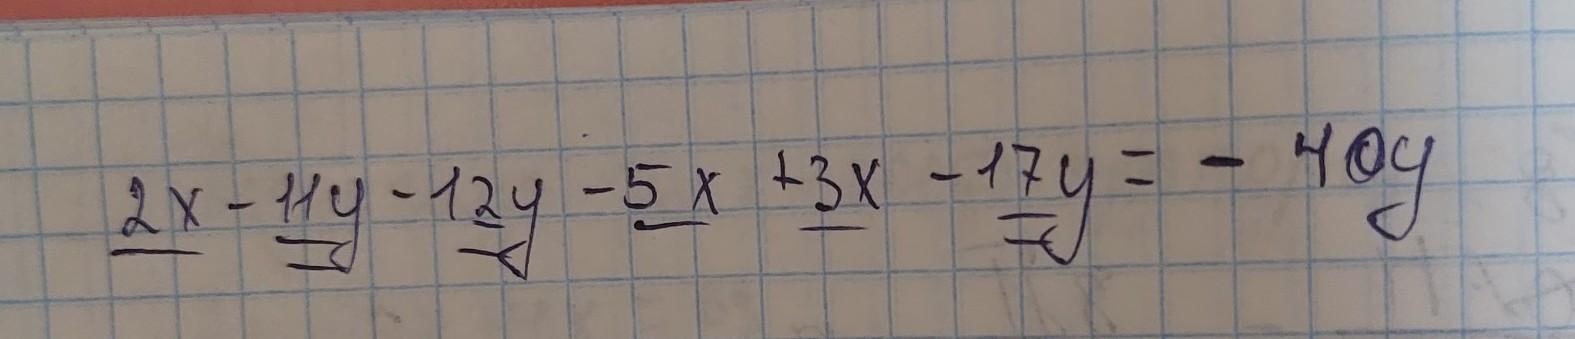 2x - 11y - 12y - 5x + 3x - 17y = - 40y